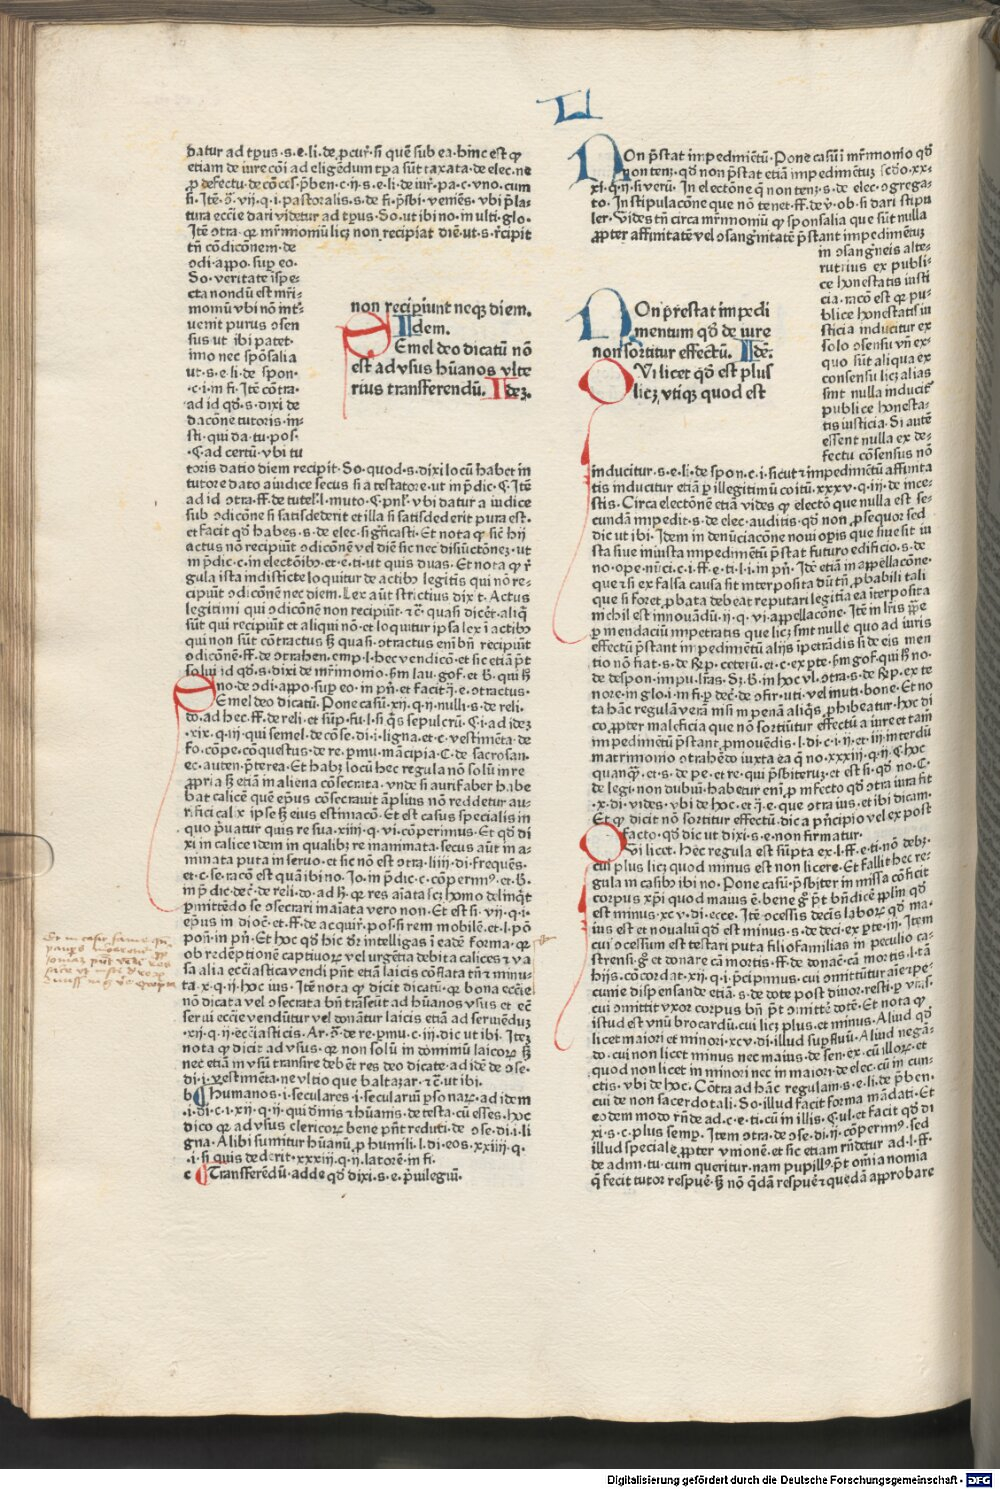 datur ad tp̄us·s·e·li·de ꝓcur̄·si quē sub ea·hinc est ꝙ
etiam de iure cōi ad eligēdum tp̄a sūt taxata·de elec·ne
ꝓ defectu·de cōces̄·p̄ben·c·ij·s·e·li·de iur̄·pa·c·vno·cum
tura ecc̄ie dari videtur ad tp̄us·So·ut ibi no·in ulti·glo·
Itē ↄtra·ꝙ mr̄imoniū licꝫ non recipiat diē·ut·s·r̄cipit
tn̄ condic̄onem·de
ↄdi·appo·suꝑ eo·
So·veritate īspe-
cta nondū est mr̄i-
momū vbi nō int̄-
uenit purus ↄsen
sus ut ibi patet·
imo nec spōsalia
ut·s·e·li·de spon·
·c·i·m fi·Itē cōtra·
ad id qd̄·s·dixi de
dac̄one tutoris·in-
sti·qui da·tu·pos̄·
·C·ad certū·vbi tu
toris datio diem recipit·So·quod·s·dixi locū habet in
tutore dato a iudice secus si a testatore·ut in p̄dic·C·Itē
ad id ↄtra·ff·de tutel̄·l·muto·C·pnl̄·vbi datur a iudice
sub ↄdic̄one si satisdederit et illa si satisdederit pura est·
et facit qd̄ habes·s·de elec·sig̅ficasti·Et nota ꝙ sic̄ hij
actus nō recipiūt ↄdic̄onē vel diē sic nec disiūctōnez·ut
m p̄dic·c·in electōibꝫ·et·e·ti·ut quis duas·Et nota ꝙ r̄
gula ista indisticte loquitur de actibꝫ legitis qui nō re-
cipiūt ↄdic̄onē nec diem·Lex aūt strictius dix̄t·Actus
legitimi qui ↄdic̄onē non recipiūt·⁊c̄·quasi dicēt·aliq̄
sūt qui recipiūt et aliqui nō·et loquitur ipsa lex ī actibꝫ
qui non sūt cōtractus sꝫ quasi·ↄtractus eni bn̄ recipiūt
ↄdic̄onē·ff·de ↄtrahen·emp·l·hec vendicō·et sic etiā p̄t
solui id qd̄·s·dixi de mr̄imonio·s̄m lau·gof·et B·qui hꝫ
no·de ↄdi·appo·suꝑ eo·in pn̄·et facit·j̄·e·ↄtractus·
Semel deo dicatū·Pone casū·xij·q·ij·nulli·s·de reli·
do·ad hec·ff·de reli·et sūp·fu·l·si q̄s sepulcrū·C·i·ad idez
·xix·q·iij·qui semel·de cōse·di·i·ligna·et·c·vestimēta·de
fo·cōpe·cōquestus·de re·ꝑmu·mācipia·C·de sacrosan·
ec·auten·p̄terea·Et habꝫ locū hec regula nō solū in re
ꝓpria sꝫ etiā in aliena cōsecrata·vnde si aurifaber habe
bat calicē quē ep̄us cōsecrauit āplius nō reddetur au-
rifici calix ipse sꝫ eius estimacō·Et est casus specialis in
quo p̄uatur quis re sua·xiiij·q·vi·cōperimus·Et qd̄ di
xi in calice idem in qualibꝫ re inanimata·secus aūt in a-
nimata puta in seruo·et sic nō est ↄtra·liiij·di·frequēs·
ꝑmittēdo se ↄsecrari aīata vero non·Et est si·vij·q·i·
ep̄us in dioc̄·et·ff·de acquir̄·pos·si rem mobilē·et·l·pō
pon̄·in pn̄·Et hoc qd̄ hic dr̄ intelligas ī eadē forma·qꝛ
ob redēptionē captiuoꝝ vel urgētia debita calices ⁊ va
sa alia ecc̄iastica vendi pn̄t etiā laicis cōflata tn̄ ⁊ minu-
ta·x·q·ij·hoc ius·Itē nota ꝙ dicit dicatū·qꝛ bona ecc̄ie
nō dicata vel ↄsecrata bn̄ trāseūt ad hūanos vsus et ec̄
serui ecc̄ie vendūtur vel donātur laicis etiā ad seruiēdū
·xij·q·ij·ecc̄iasticis·Ar·ō·de re·ꝑmu·c·iij·dic ut ibi·Itez
nota ꝙ dicit ad vsus·qꝛ non solū in dominiū laicoꝝ sꝫ
nec etiā in vsū transire debēt res deo dicate·ad idē de ↄse·
di·i·vestimēta·ne vltio que baltazar·⁊c̄·ut ibi·
b Humanos·i·seculares·i·seculariū ꝑsonaꝝ·ad idem
·i·di·c·i·xij·q·ij·qui diuinis ⁊ hūanis·de testa·cū esses·hoc
dico qꝛ ad vsus clericoꝝ bene pn̄t reduci·de ↄse·di·i·li
gna·Alibi sumitur hūanū ꝓ humili·l·di·eos·xxiiij·q·
·i·si quis dederit·xxxiij·q·ij·latorē·in fi·
c Transferēdū·adde qd̄ dixi·s·e·p̄uilegiū·
non recipiunt neqꝫ diem.
Idem.
Semel deo dicatū nō
est ad vsus hūanos vlte
rius transferendū. Idez.
Non p̄stat impedimētū·Pone casū ī mr̄imonio qd̄
non tenꝫ·qd̄ non p̄stat etiā impedimētuꝫ scd̄o·xx-
xi·q·ij·si verū·In electōne q̄ non tenꝫ·s·de elec·ↄgrega-
to·In stipulac̄one que nō tenet·ff·de v̄·ob·si dari stipu
ler·Vides tn̄ circa mr̄imoniū ꝙ sponsalia que sūt nulla
ꝓpter affinitatē vel ↄsanguinitatē p̄stant impedimētuꝫ
in ↄsang̅neis alte-
rutrius ex publi-
ce honestatis iusti
cia·rac̄o est qꝛ pu-
blice honestatis iu
sticia inducitur ex
solo ↄsensu vn̄ ex-
quo sūt aliqua ex
consensu licꝫ alias
sint nulla inducit̄
publice honesta-
tis iusticia·Si autē
essent nulla ex de-
fectu cōsensus nō
Non prestat impedi
mentum qd̄ de iure
non sortitur effectū. Idē.
Cui licet qd̄ est plus
licꝫ vtiqꝫ quod est
inducitur·s·e·li·de spon·c·i·sicut ⁊ impedimētū affinita
tis inducitur etiā ꝑ illegitimū coitū·xxxv·q·iij·de ince-
stis·Circa electōnē etiā vides ꝙ electō que nulla est se-
cundā impedit·s·de elec·auditis·qd̄ non ꝓsequor sed
dic ut ibi·Idem in denūciac̄one noui opis que siue sit iu
sta siue iniusta impedimētū p̄stat futuro edificio·s·de
no·ope·nūci·c·i·ff·e·ti·l·i·in pn̄·Idē etiā in appellac̄one·
que ⁊ si ex falsa causa sit interposita dū tn̄ ꝓbabili tali
que si foret ꝓbata debeat reputari legitia ea īterposita
nichil est innouādū·ij·q·vi·appellac̄one·Itē in lr̄is pp̄e
ꝑ mendaciū impetratis que licꝫ sint nulle quo ad iuris
effectū p̄stant impedimētū alijs īpetrādis si de eis men
tio nō fiat·s·de Rꝑ·ceterū·et·c·ex ꝑte·s̄m gof·qui hꝫ no·
ta hāc regulā verā nisi in penā aliq̄s ꝓhibeatur·hoc di
co ꝓpter maleficia que nō sortiūtur effectū a iure et tam̄
impedimētū p̄stant ꝓmouēdis·l·di·c·i·ij·et·iij·interdū
matrimonio ↄtrahēdo iuxta ea q̄ no·xxxiij·q·ij·C·hoc
quanq̄·et·s·de pe·et re·qui p̄sbiteruꝫ·et est si·qd̄ no·C·
de legi·non dubiū·habetur eni ꝓ infecto qd̄ ↄtra iura fit
·x·di·vides·vbi de hoc·et·j̄·e·que ↄtra ius·et ibi dicam·
Et ꝙ dicit nō sortitur effectū·dic a p̄ncipio vel ex post
facto·qd̄ dic ut dixi·s·e·non firmatur·
Cui licet·Hec regula est sūpta ex·l·ff·e·ti·nō debꝫ·
cui plus licꝫ quod minus est non licere·Et fallit hec re-
gula in casibꝫ ibi no·Pone casū·p̄sbiter in missa cōficit
corpus xp̄i quod maius ē·bene g̊ p̄t bn̄dicē ꝓplm̄ qd̄
est minus·xcv·di·ecce·Itē ↄcessis decīs laboꝝ qd̄ ma-
ius est et noualiū qd̄ est minus·s·de deci·ex ꝑte·ij·Item
cui ↄcessum est testari puta filiofamilias in peculio ca-
strensi·g̊ et donare cā mortis·ff·de donac̄·cā mortis·l·tā
hijs·cōcordat·xij·q·i·p̄cipimus·cui omittūtur aie ⁊ pe-
cunie dispensande etiā·s·de dote post diuor·resti·ꝑ vr̄as·
cui ↄmittit vxor corpus bn̄ p̄t ↄmittē dotē·Et nota ꝙ
istud est vnū brocardū·cui licꝫ plus·et minus·Aliud qd̄
licet maiori et minori·xcv·di·illud suꝑfluū·Aliud negā-
do·cui non licet minus nec maius·de sen·ex·cū illoꝝ·et
quod non licet in minori nec in maiori·de elec·cū in cun-
ctis·vbi de hoc·Cōtra ad hāc regulam·s·e·li·de p̄ben·
cui de non sacerdotali·So·illud facit forma mādati·Et
eodem modo rn̄de ad·c·e·ti·cū in illis·C·ul·et facit qd̄ di
xi·s·c·plus semꝑ·Item ↄtra·de ↄse·di·ij·cōperimꝰ·sed
illud speciale ꝓpter vnionē·et sic etiam rn̄detur ad·l·ff·
de admi·tu·cum queritur·nam pupillꝰ p̄t om̄ia nomia
q̄ fecit tutor respuē·sꝫ nō q̄dā respuē ⁊ quedā approbare
Digitalisierung gefördert durch die Deutsche Forschungsgemeinschaft - DFG